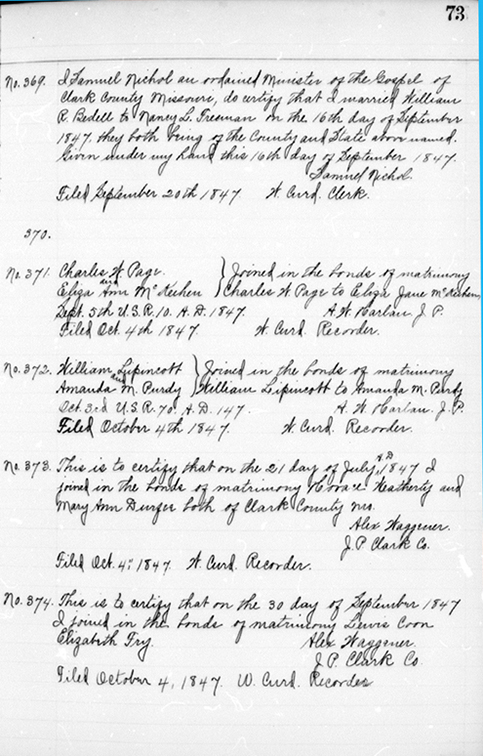 73
No. 369. I Samuel Nichol an ordained Minister of the Gospel of
Clark County Missouri, do certify that I married William
R. Bedell to Nancy L. Freeman on the 16th day of September
1847. they both being of the County and State above named.
Given under my hand this 16th day of September 1847.
Samuel Nichol.
Filed September 20th 1847. W. Curd. Clerk.
370.
No. 371. Charles W. Page. } Joined in the bonds of matrimony
and
Eliza Ann McKeehen } Charles W. Page to Eliza Jane McKeehen,
Sept. 5th U.S.R. 10. A.D. 1847. A. W. Harlan J. P.
Filed Oct. 4th 1847 W. Curd. Recorder.
No. 372. William Lipincott } Joined in the bonds of matrimony
and
Amanda M. Purdy } William Lipincott to Amanda M. Purdy
Oct. 3rd U.S.R. 70. A.D. 147. A. W. Harlan. J. P.
Filed October 4th 1847. W. Curd. Recorder.
No. 373. This is to certify that on the 21 day of July, A.D 1847 I
joined in the bonds of matrimony Horace Weatherty and
Mary Ann Durfee both of Clark County Mo.
Alex Waggener.
J. P. Clark Co.
Filed Oct. 4th 1847. W. Curd. Recorder.
No. 374. This is to certify that on the 30 day of September 1847
I joined in the bonds of matrimony Lewis Coon
Elizabeth Fry. Alex Waggener.
J. P. Clark Co.
Filed October 4, 1847. W. Curd. Recorder